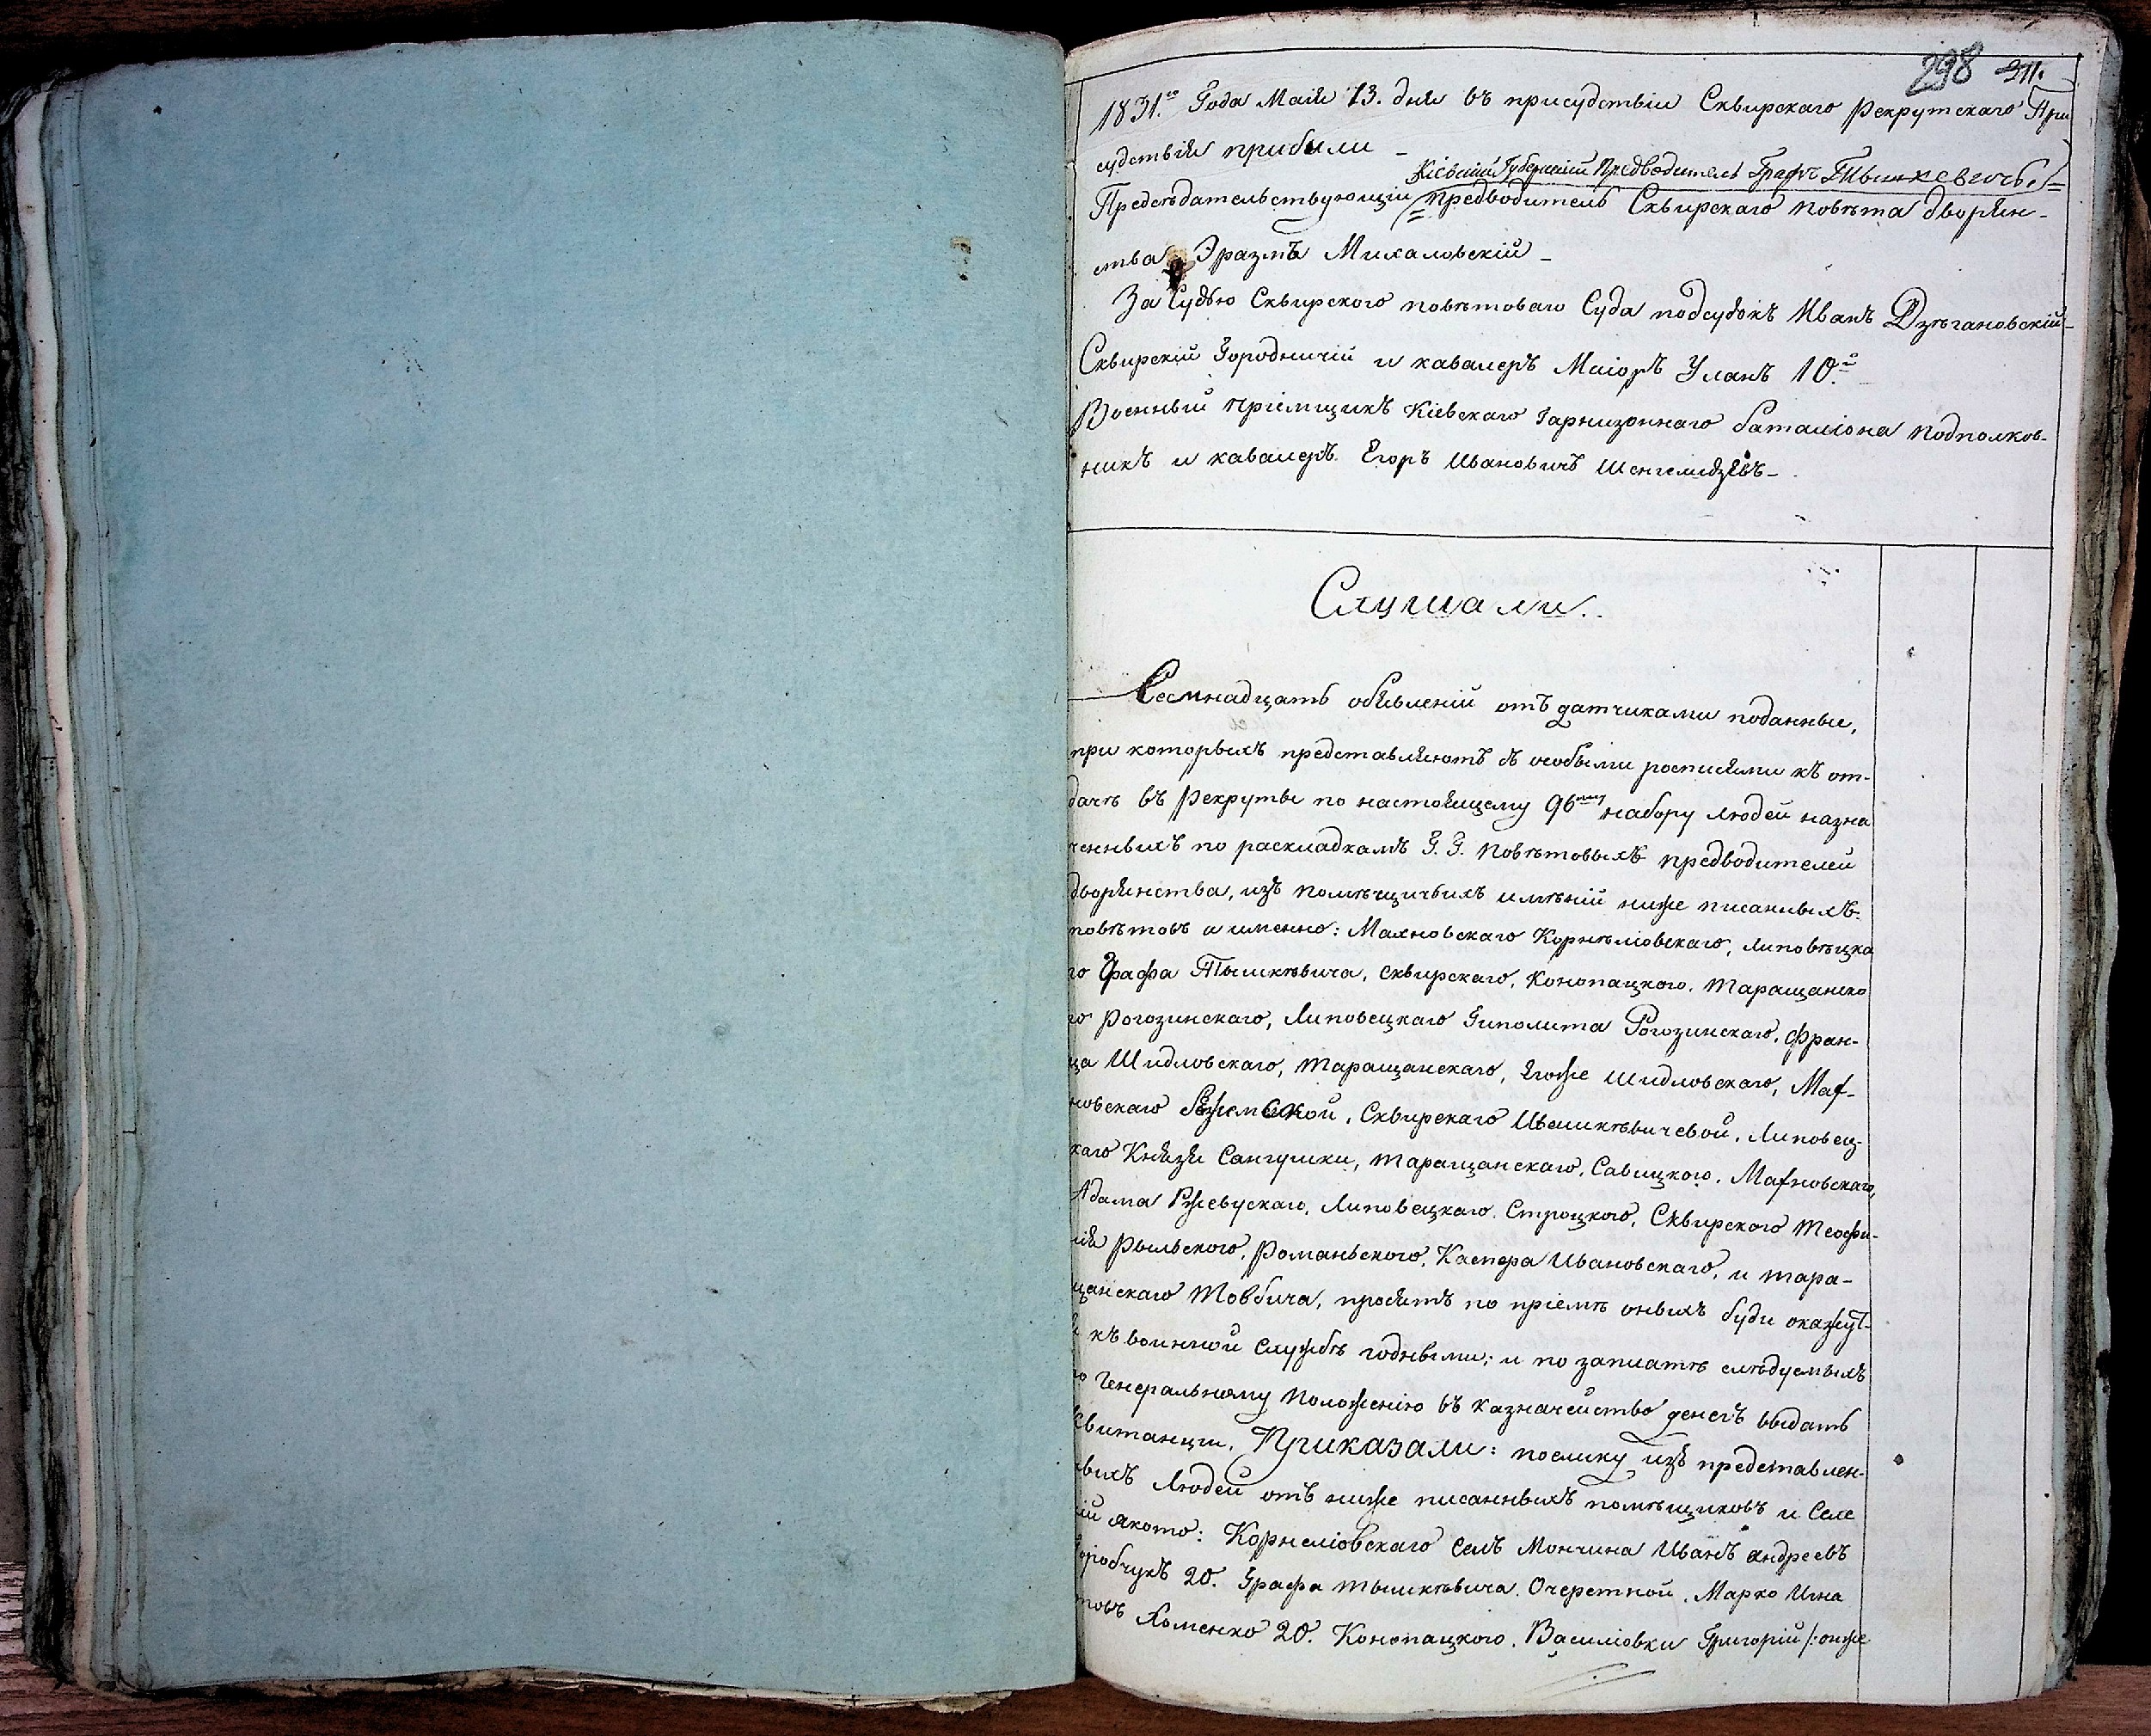 298 311.
1831.го Года Маія 13. дня въ присудствіи Сквирскаго Рекрутскаго При
судствія прибыли –
Кіевскій Губернскій Предводитель Графъ Тышкевичъ
Предсѣдательствующій Предводитель Сквирскаго повѣта дворян-
ства Эразмъ Михаловскій –
За Судью Сквирского повѣтоваго Суда подсудокъ Иванъ Дзѣгановскій –
Сквирскій Городничій и кавалеръ Маіоръ Уланъ 10.й
Военный пріемщикъ Кіевскаго Гарнизоннаго баталіона подполков-
никъ и кавалеръ Егоръ Ивановичъ
Слушали.
Семнадцать объявленій отъ датчиками поданные,
при которыхъ представляютъ съ особыми росписями къ от-
дачѣ въ Рекруты по настоящему 96му набору людей назна
ченныхъ по раскладкамъ Г. Г. повѣтовыхъ предводителей
дворянства, изъ помѣщичьихъ имѣній ниже писанныхъ
повѣтовъ а именно: Махновскаго Корнѣліовскаго, Липовѣцка
го Графа Тышкѣвича, Сквирскаго, Конопацкого, Таращанско
го Рогозинскаго, Липовецкаго Гиполита Рогозинскаго, Фран-
ца Шидловскаго, Таращанскаго, Егоже Шидловскаго, Мах-
новскаго Сквирскаго Липовец-
каго Князя Сангушки, Таращанскаго, Савицкого, Махновскаго,
Адама Ржевускаго, Липовецкаго Строцкого, Сквирского Теофи-
ля Рыльского, Романьского, Каспера Ивановскаго, и Тара-
щанскаго Товбича, просятъ по пріемѣ оныхъ буди окажут-
ся къ воинной службѣ годными; и по заплатѣ слѣдуемыхъ
по Генеральному положенію въ казначейство денегъ выдать
Квитанци, Приказали: поелику изъ представлен-
ныхъ людей отъ ниже писанныхъ помѣщиковъ и Селе
ній якото: Корнеліовскаго селъ Мончина Иванъ Андреевъ
20. Графа Тышкѣвича. Очеретной, Марко Игна
товъ Хоменко 20. Конопацкого, Василіовки Григорій /: онже